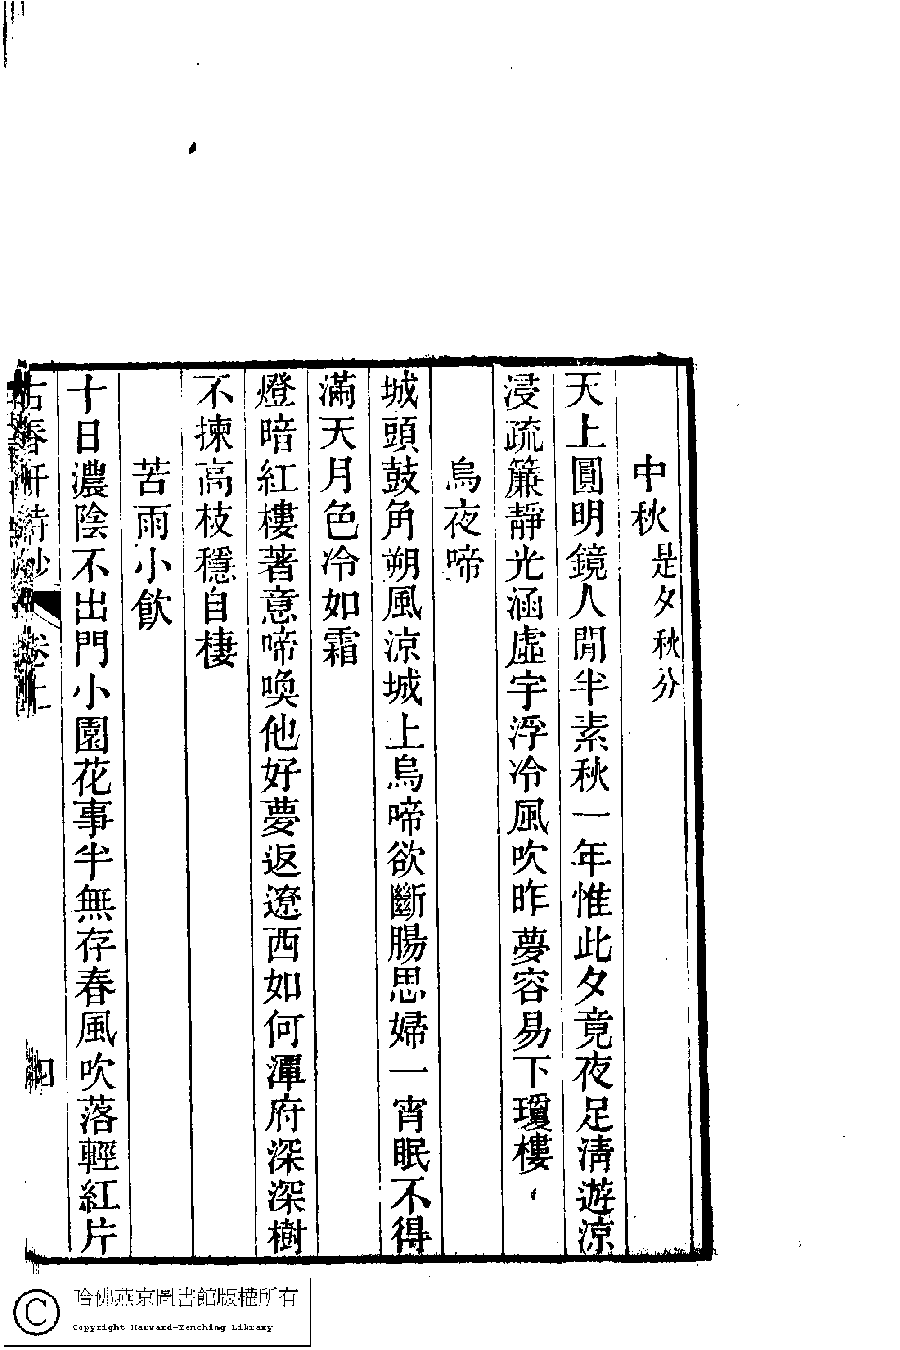 中秋 是夕秋分
天上圓明鏡人閒半素秋一年惟此夕竟夜足淸遊涼
浸疏簾靜光涵虛宇浮冷風吹昨夢容易下瓊樓
烏夜啼
城頭鼓角朔風涼城上烏啼欲斷腸思婦一宵眠不得
滿天月色冷如霜
燈暗紅樓著意啼喚他好夢返遼西如何潭府深深樹
不揀高枝穩自棲
苦雨小飮
十日濃陰不出門小園花事半無存春風吹落輕紅片
古春軒詩鈔 卷上
四
哈佛燕京圖書館版權所有
Copyright Harvard-Yenching Library